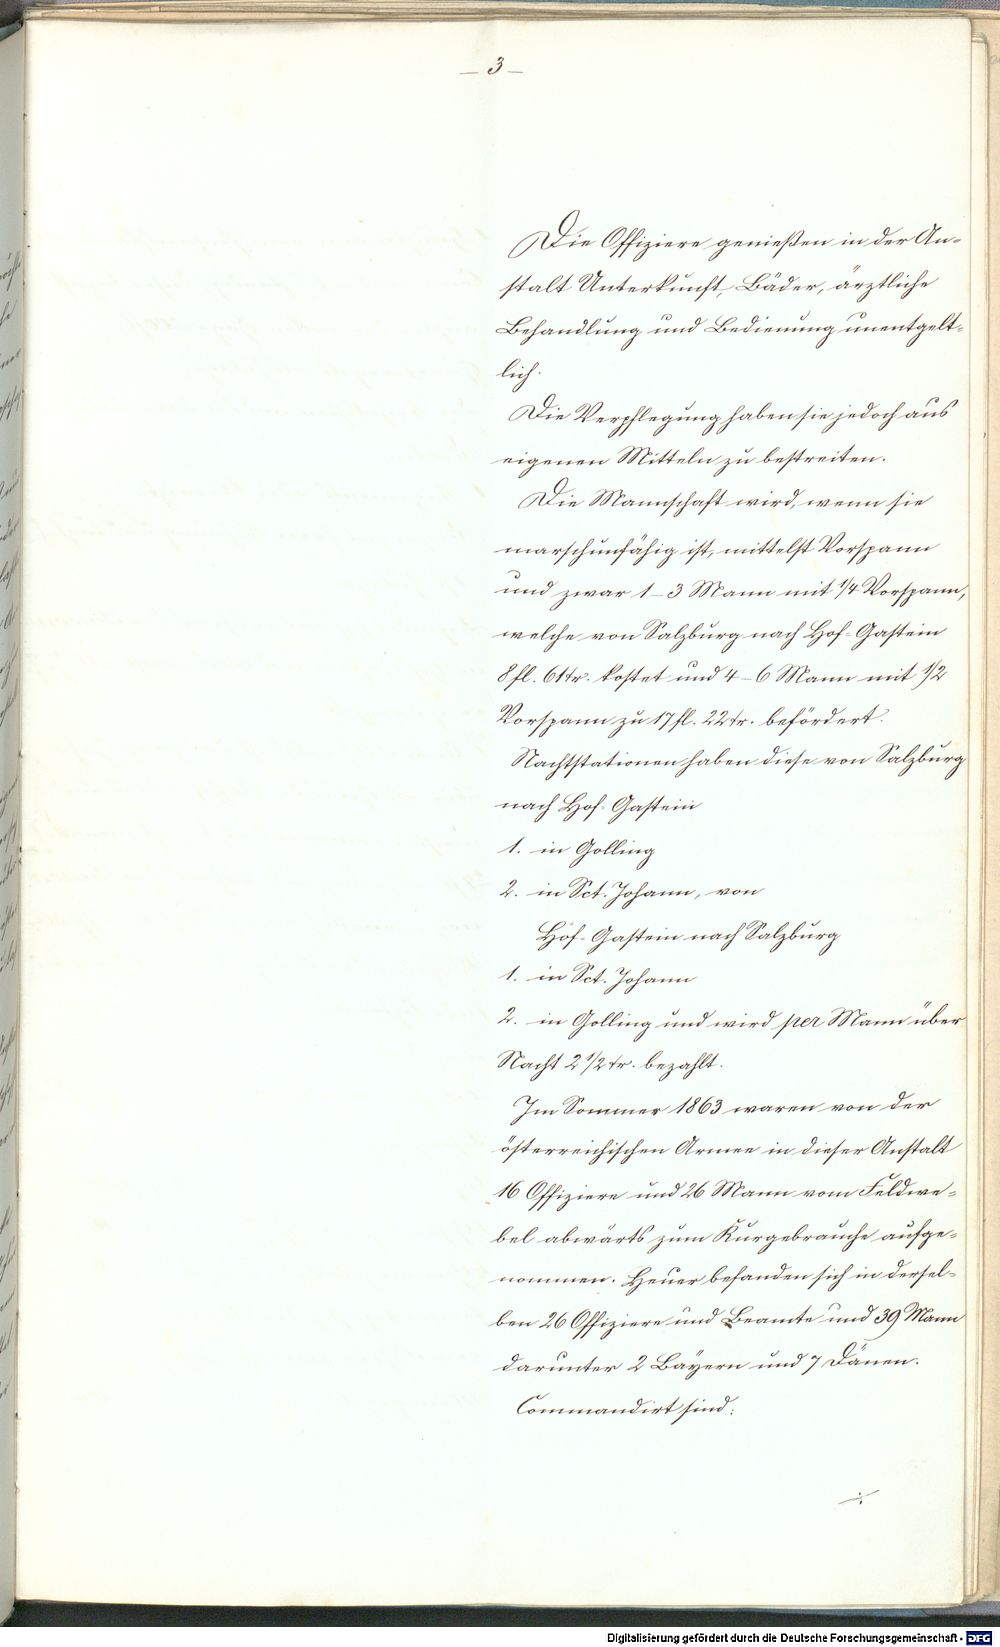 – 3 –
Die Offiziere genießen in der An-
stalt Unterkunft, Bäder, ärztliche
Behandlung und Bedienung unentgelt-
lich.
Die Verpflegung haben sie jedoch aus
eigenen Mitteln zu bestreiten.
Die Mannschaft wird, wenn sie
marschunfähig ist, mittelst Vorspann
und zwar 1–3 Mann mit 1/4 Vorspann,
welche von Salzburg nach Hof-Gastein
8 fl. 61 kr. kostet und 4–6 Mann mit 1/2
Vorspann zu 17 fl. 22 kr. befördert.
Nachtstationen haben diese von Salzburg
nach Hof-Gastein
1. in Golling
2. in Sct. Johann, von
Hof-Gastein nach Salzburg
1. in Sct. Johann
2. in Golling und wird per Mann über
Nacht 2 1/2 kr. bezahlt.
Im Sommer 1863 waren von der
österreichischen Armee in dieser Anstalt
16 Offiziere und 26 Mann vom Feldwe-
bel abwärts zum Kurgebrauche aufge-
nommen. Heuer befanden sich in dersel-
ben 26 Offiziere und Beamte und 39 Mann
darunter 2 Bayern und 7 Dänen.
Commandirt sind:
./.
Digitalisierung gefördert durch die Deutsche Forschungsgemeinschaft - DFG